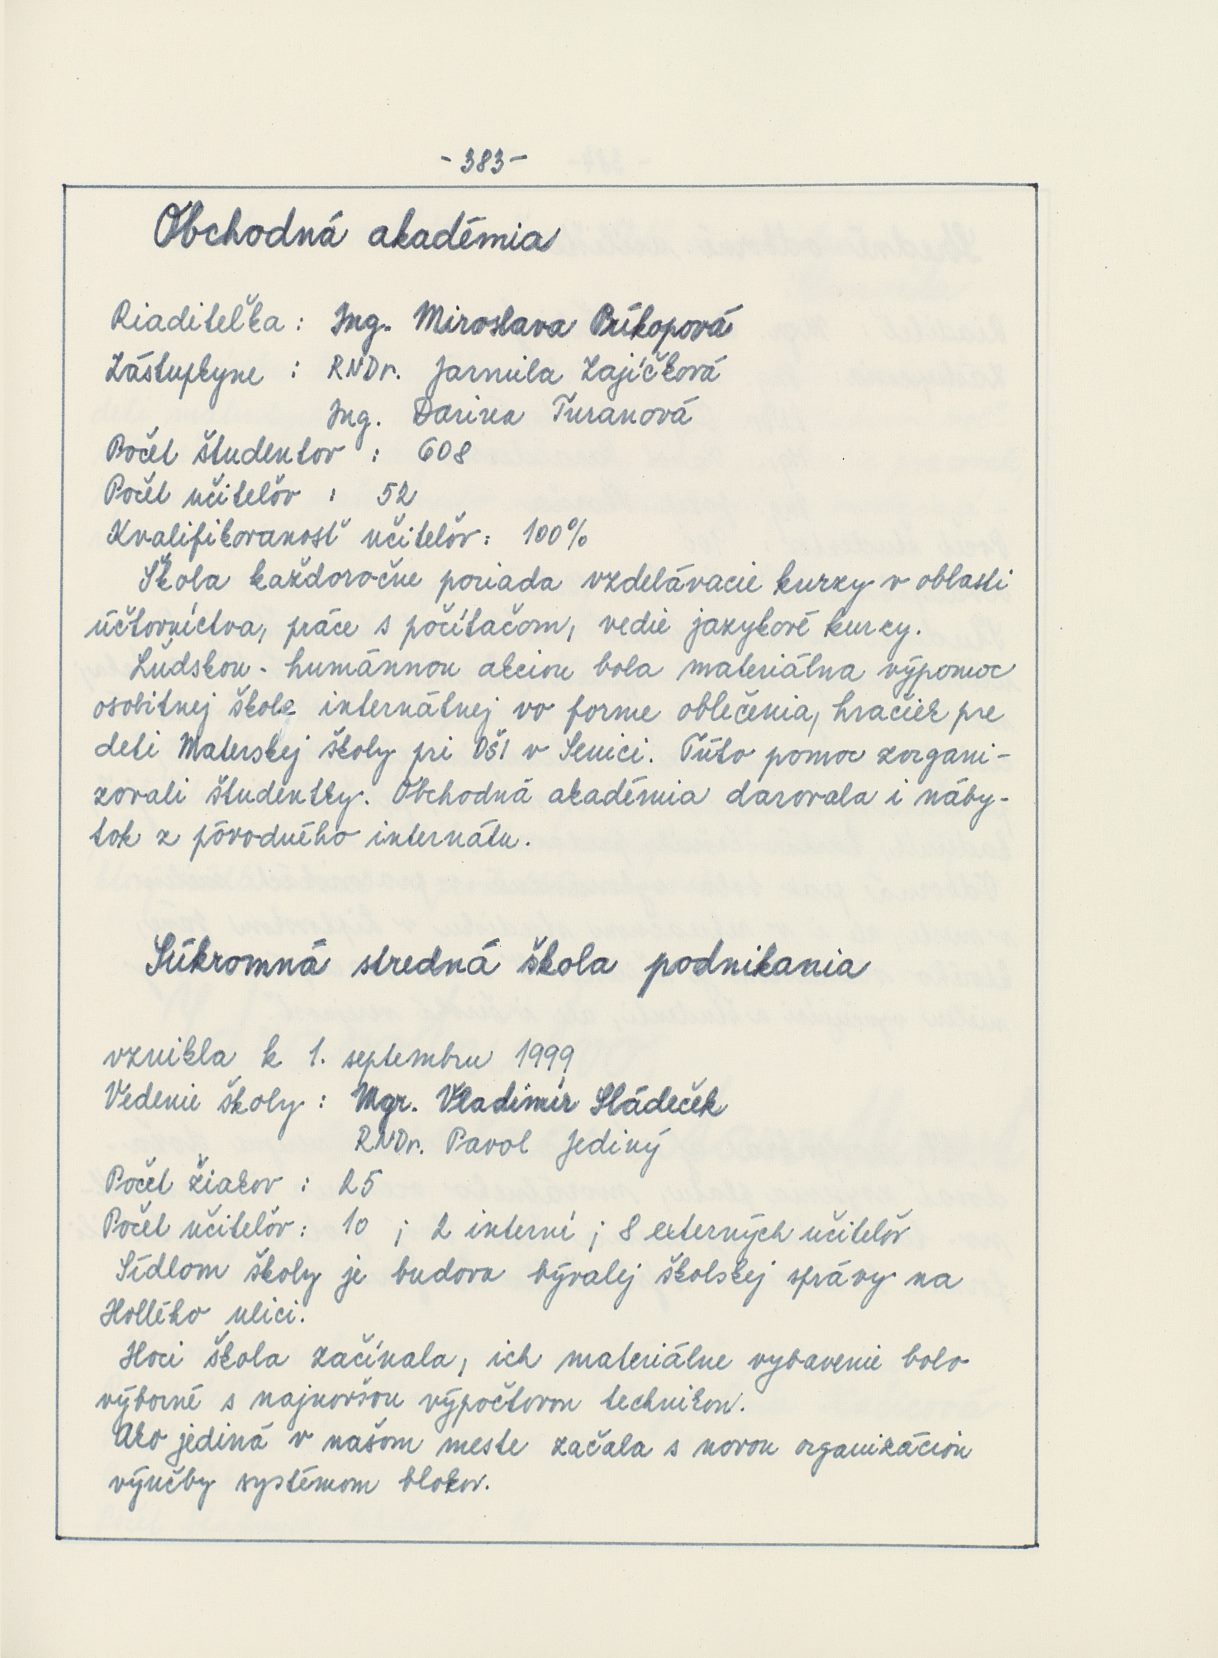 -383-
Obchodná akadémia
Riaditeľka : Ing. Miroslava Príkopová
Zástupkyne : RNDr. Jarmila Zajíčková
Ing. Darina Turanová
Počet študentov : 608
Počet učiteľov : 52
Kvalifikovanosť učiteľov : 100%
Škola každoročne poriada vzdelávacie kurzy v oblasti
účtovníctva, práce s počítačom, vedie jazykové kurzy.
Ľudskou - humánnou akciou bola materiálna výpomoc
osobitnej škole internátnej vo forme oblečenia, hračiek pre
deti Materskej školy pri OŠI v Senici. Túto pomoc zorgani-
zovali študentky. Obchodná akadémia darovala i náby-
tok z pôvodného internátu.
Súkromná stredná škola podnikania
vznikla k 1. septembru 1999
Vedenie školy : Mgr. Vladimír Sládeček
RNDr. Pavol Jediný
Počet žiakov : 25
Počet učiteľov : 10 ; 2 interní ; 8 externých učiteľov
Sídlom školy je budova bývalej školskej správy na
Hollého ulici.
Hoci škola začínala, ich materiálne vybavenie bolo
výborné s najnovšou výpočtovou technikou.
Ako jediná v našom meste začala s novou organizáciou
výučby systémom blokov.